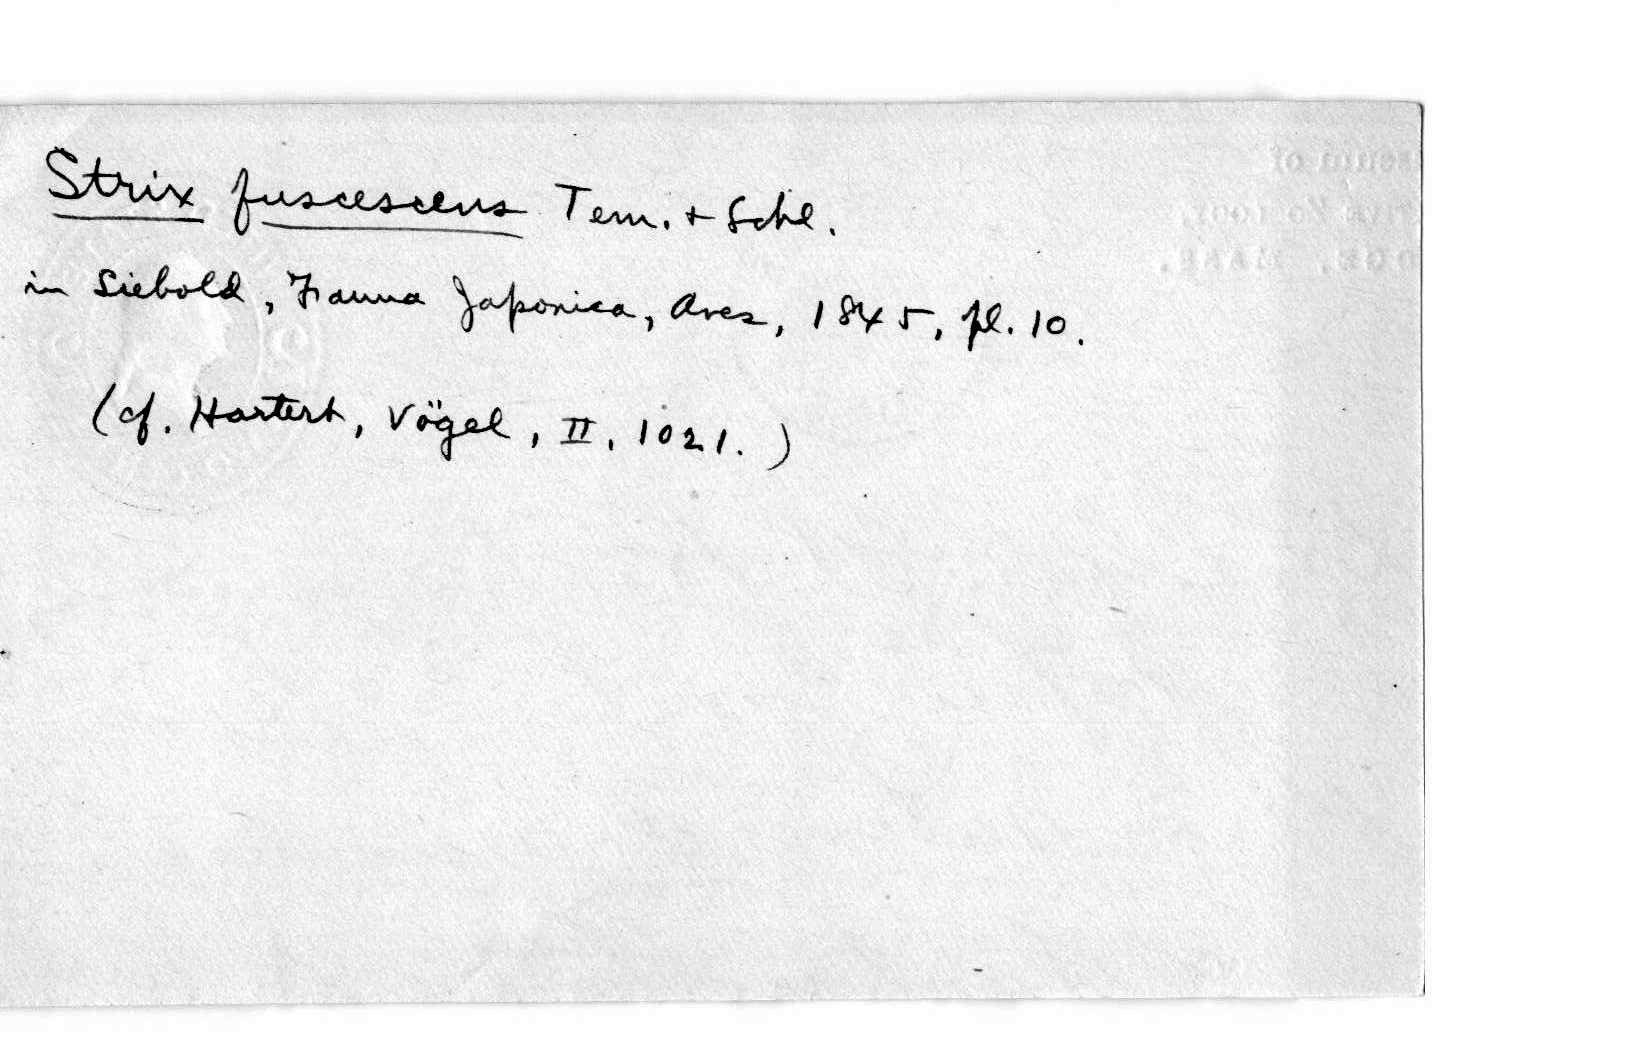 Strix fuscescens Tem. + Schl.
in Siebold, Fauna Japonica, Aves, 1845, pl. 10.
(cf. Hartert, Vögel, II, 1021.)